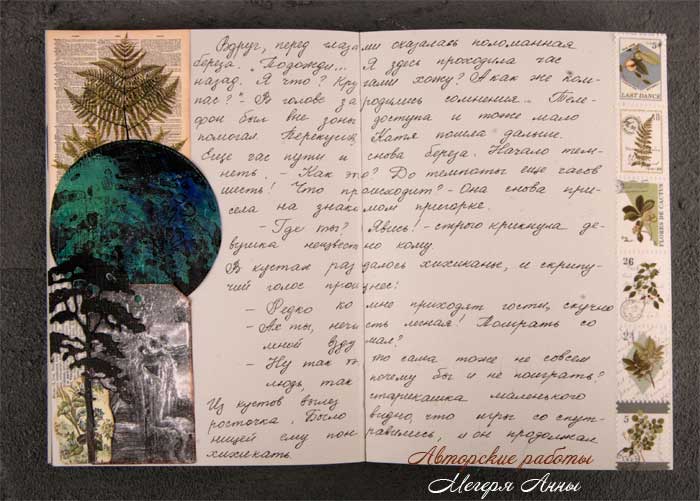 Вдруг, перед глазами оказалась поломанная
береза. "Подожди... Я здесь проходила час
назад. Я что? Кругами хожу? А как же ком-
пас?" - В голове зародились сомнения... Теле-
фон был вне зоны доступа и тоже мало
помогал. Перекусив, Катя пошла дальше.
Еще час пути и снова береза. Начало тем-
неть. - Как это? До темноты еще часов
шесть! Что происходит? - Она снова при-
села на знакомом пригорке.
- Где ты? Явись! - строго крикнула де-
вушка неизвестно кому.
В кустах раздалось хихиканье, и скрипу-
чий голос произнес:
- Редко ко мне приходят гости, скучно
- Ах ты, нечисть лесная! Поиграть со
мной вздумал?
- Ну так ты сама тоже не совсем
людь, так почему бы и не поиграть?
Из кустов вылез старикашка маленького
росточка. Было видно, что игры со спут-
ницей ему понравились, и он продолжал
хихикать.
LAST DANCE
FLORES DE CACTUS
Авторские работы
Мегеря Анны